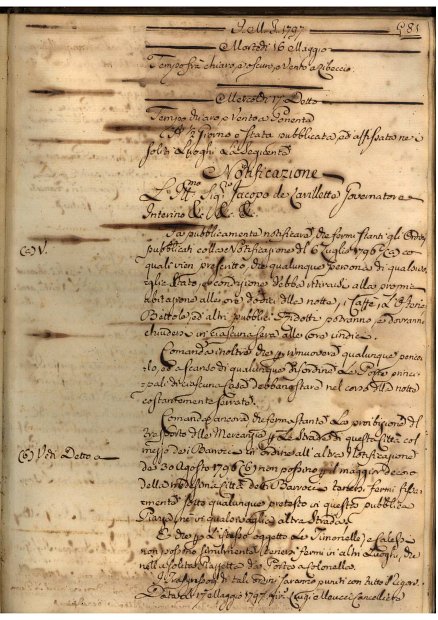 A. M. D. 1797
581
Martedì 16 Maggio
Tempo frà chiaro, e oscuro, e Vento a Libeccio
Mercoldì 17 Detto
Tempo chiaro, e Vento a Ponente
Giorno è stata pubblicata, ed affissata ne i
soliti Luoghi la seguente
Notificazione
L' Ill.mo Sig.re Jacopo de Lavillette Governatore
Interino &c. &c. &c.
Fa pubblicamente notificare, che fermi stanti gli Ordini
(a) V.
pubblicati colla Notificazione del 6 Luglio 1796 (a) co
quali vien prescritto, che qualunque persona di qualsivo,
glia Stato, e condizione debba ritirarsi alla propria
abitazione alle ore dodici della notte, i Caffè, le Osterie
Bettole, ed altri pubblici Ridotti potranno, e dovranno
chiudersi in ciascuna sera alle ore undici
Comanda inoltre, che per rimuovere qualunque perico,
lo, ed a scanso di qualunque disordine Le Porte princi,
pali di ciascuna Casa debbano stare nel corso della notte
costantemente serrate.
Comanda ancora, che ferma stante La proibizione del
trasporto delle Mercanzie per Le strade di questa Città col
mezzo dei Barocci in ordine all' altra Notificazione
(b) Vedi Detto a
de' 30 Agosto 1796 (b) non possino per maggior decoro
della medesima Città detti Barocci tenersi fermi
sotto qualunque pretesto in questa pubblica
Piazza, ne in qualsivoglia altra Strada.
E che per L'istesso oggetto Le Timonelle, e Calessi
non possino similmente tenersi fermi in altri Luoghi, che
nella solita Piazzetta del Porto a Colonella.
I Trasgressori di tali Ordini saranno puniti con tutto rigore.
Data Li 17 Maggio 1797. Luigi Cancelliere